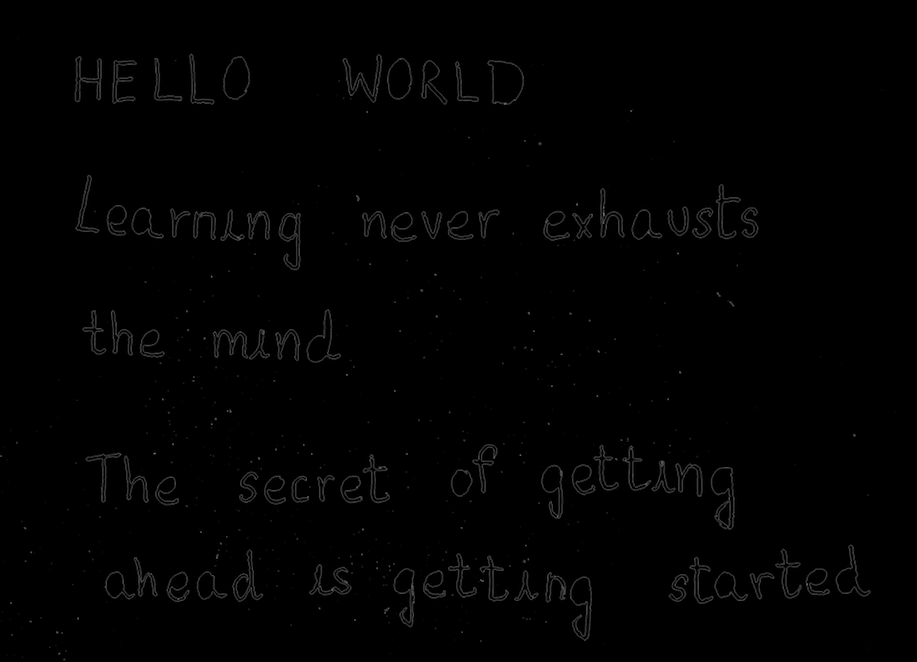 HELLO WORLD
Learning never exhausts
the mind
The secret of getting
ahead is getting started